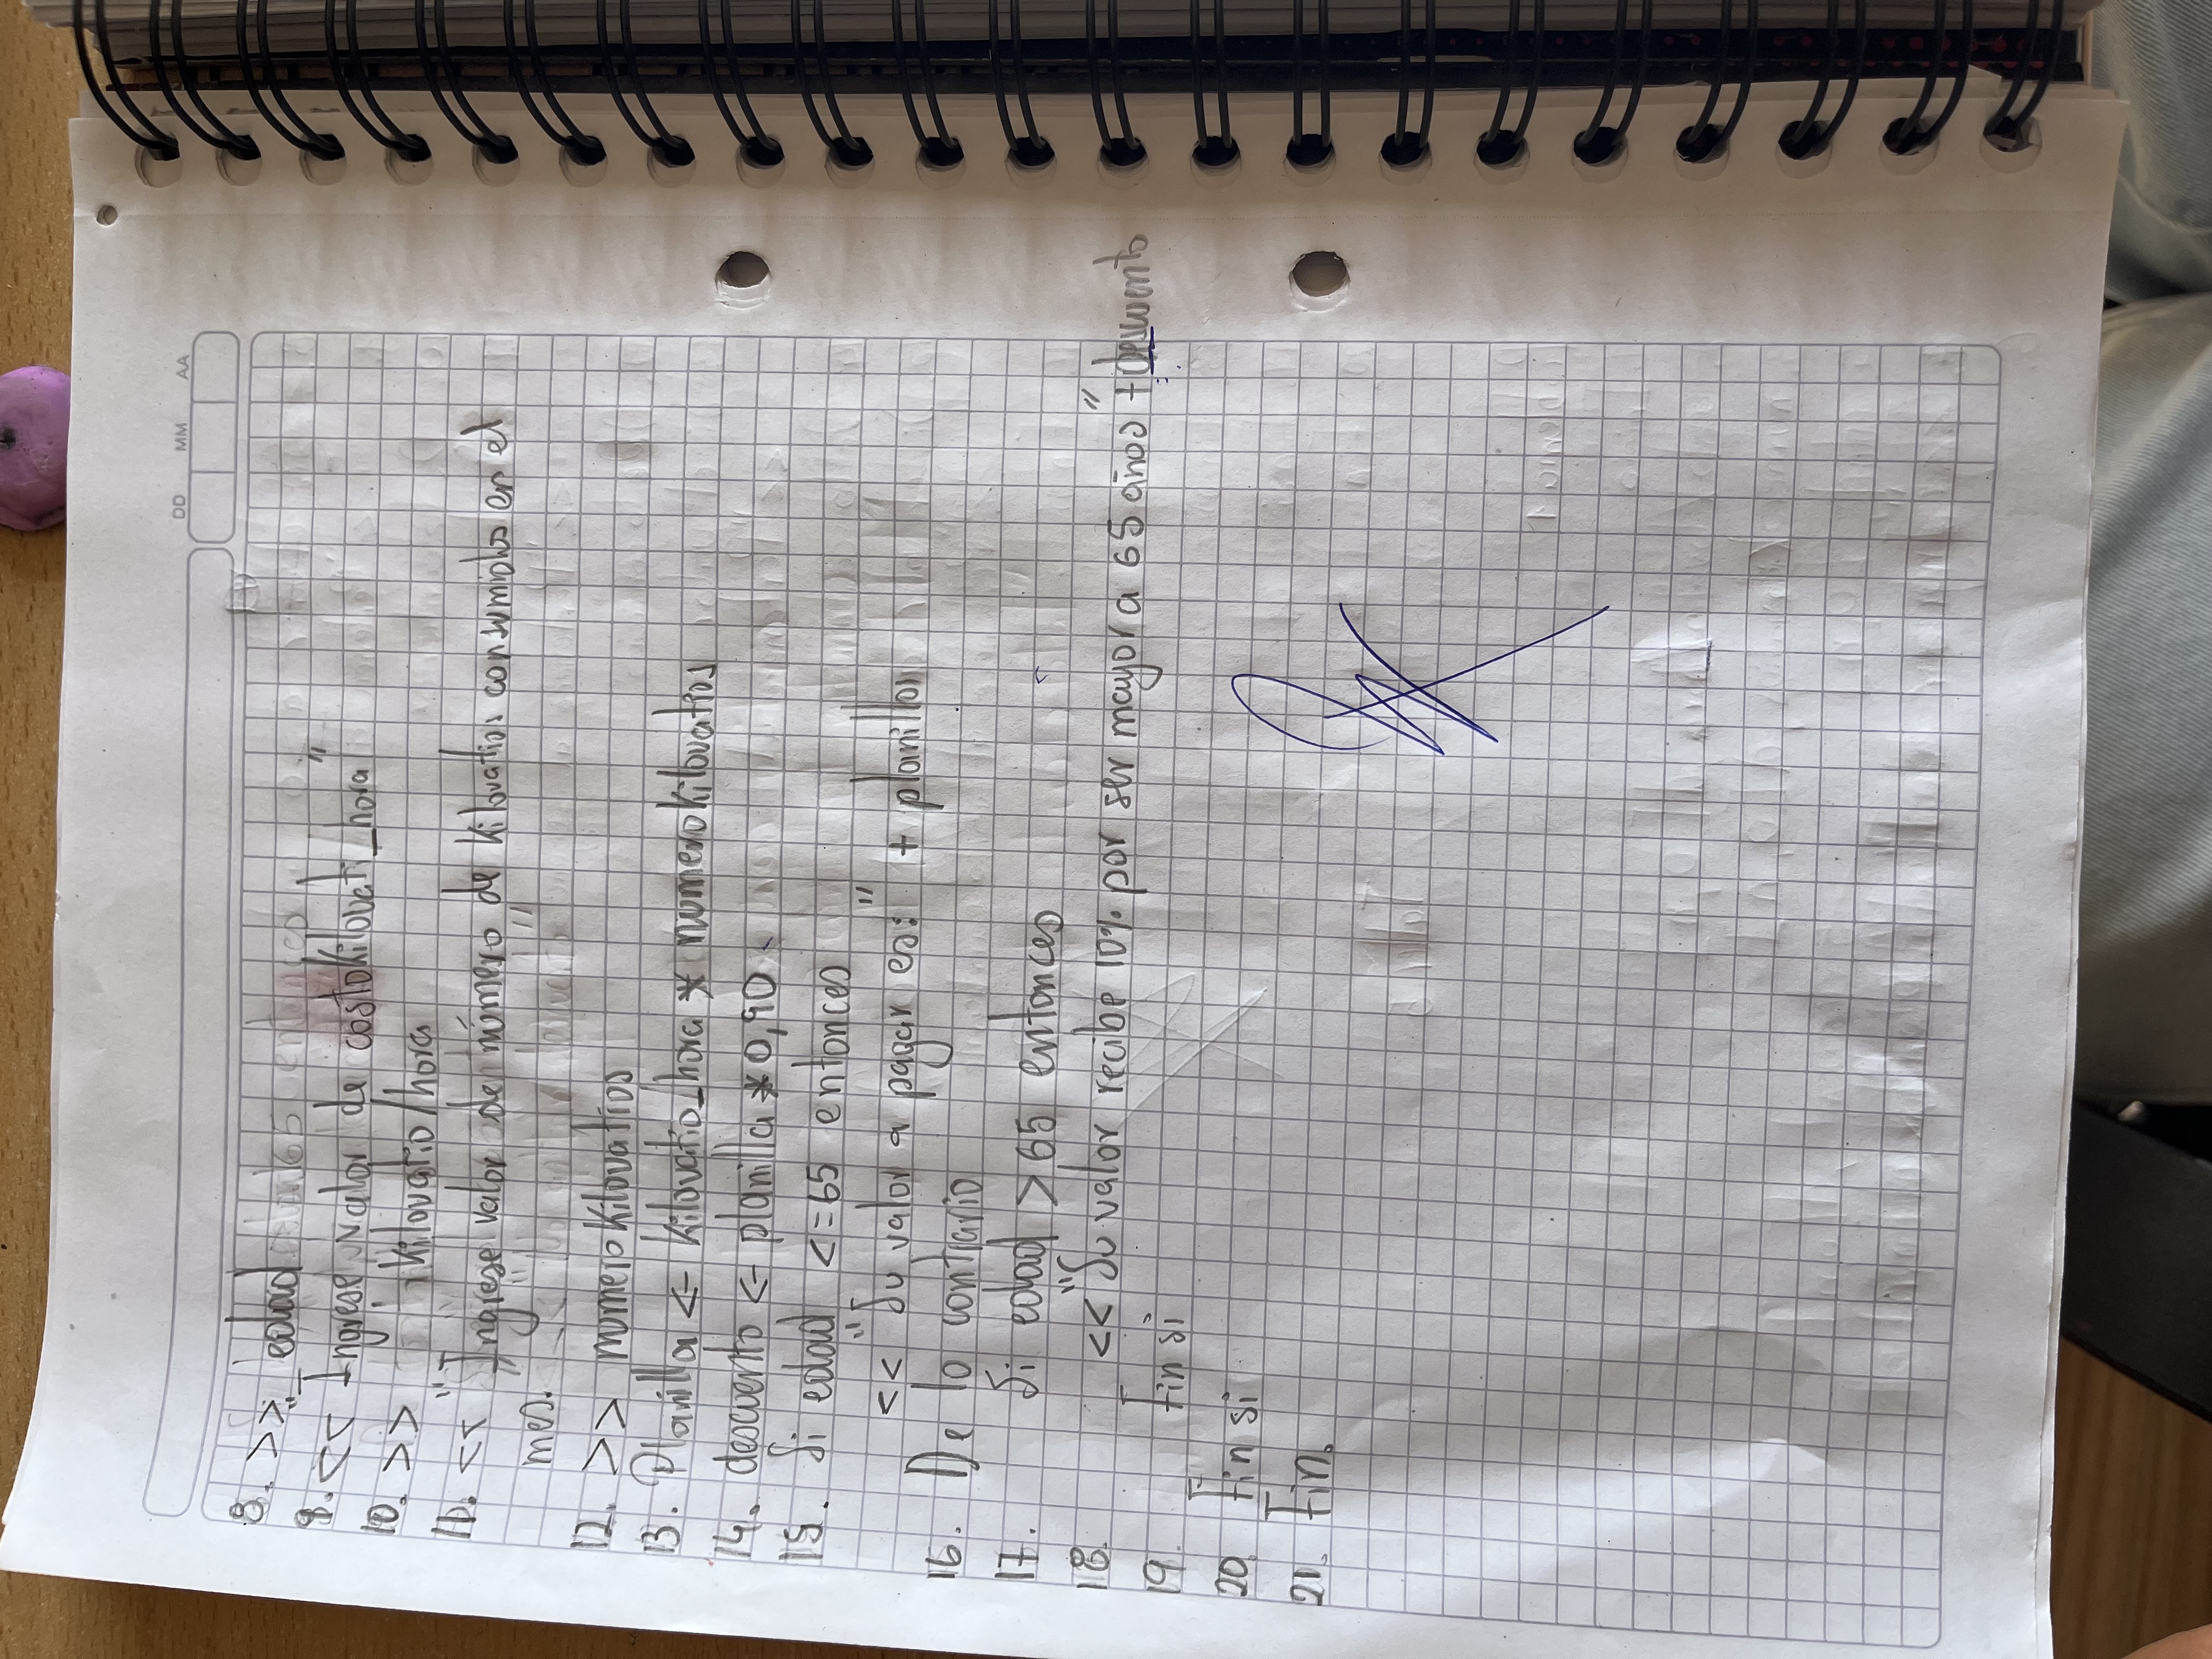 DD MM AA
8. >> edad
9. << "Ingrese valor de costokilovati_hora"
10. >> kilovatio/hora
11. << "Ingrese valor de número de kilovatios consumidos en el
mes."
12. >> numerokilovatios
13. Planilla <- kilovatio_hora * numerokilovatios
14. descuento <- planilla * 0,90
15. Si edad <=65 entonces
<< "Su valor a pagar es:" + planilla
16. De lo contrario
17. Si edad >65 entonces
18. <<"Su valor recibe 10% por ser mayor a 65 años" + descuento
19. Fin si
20 Fin si
21. Fin.